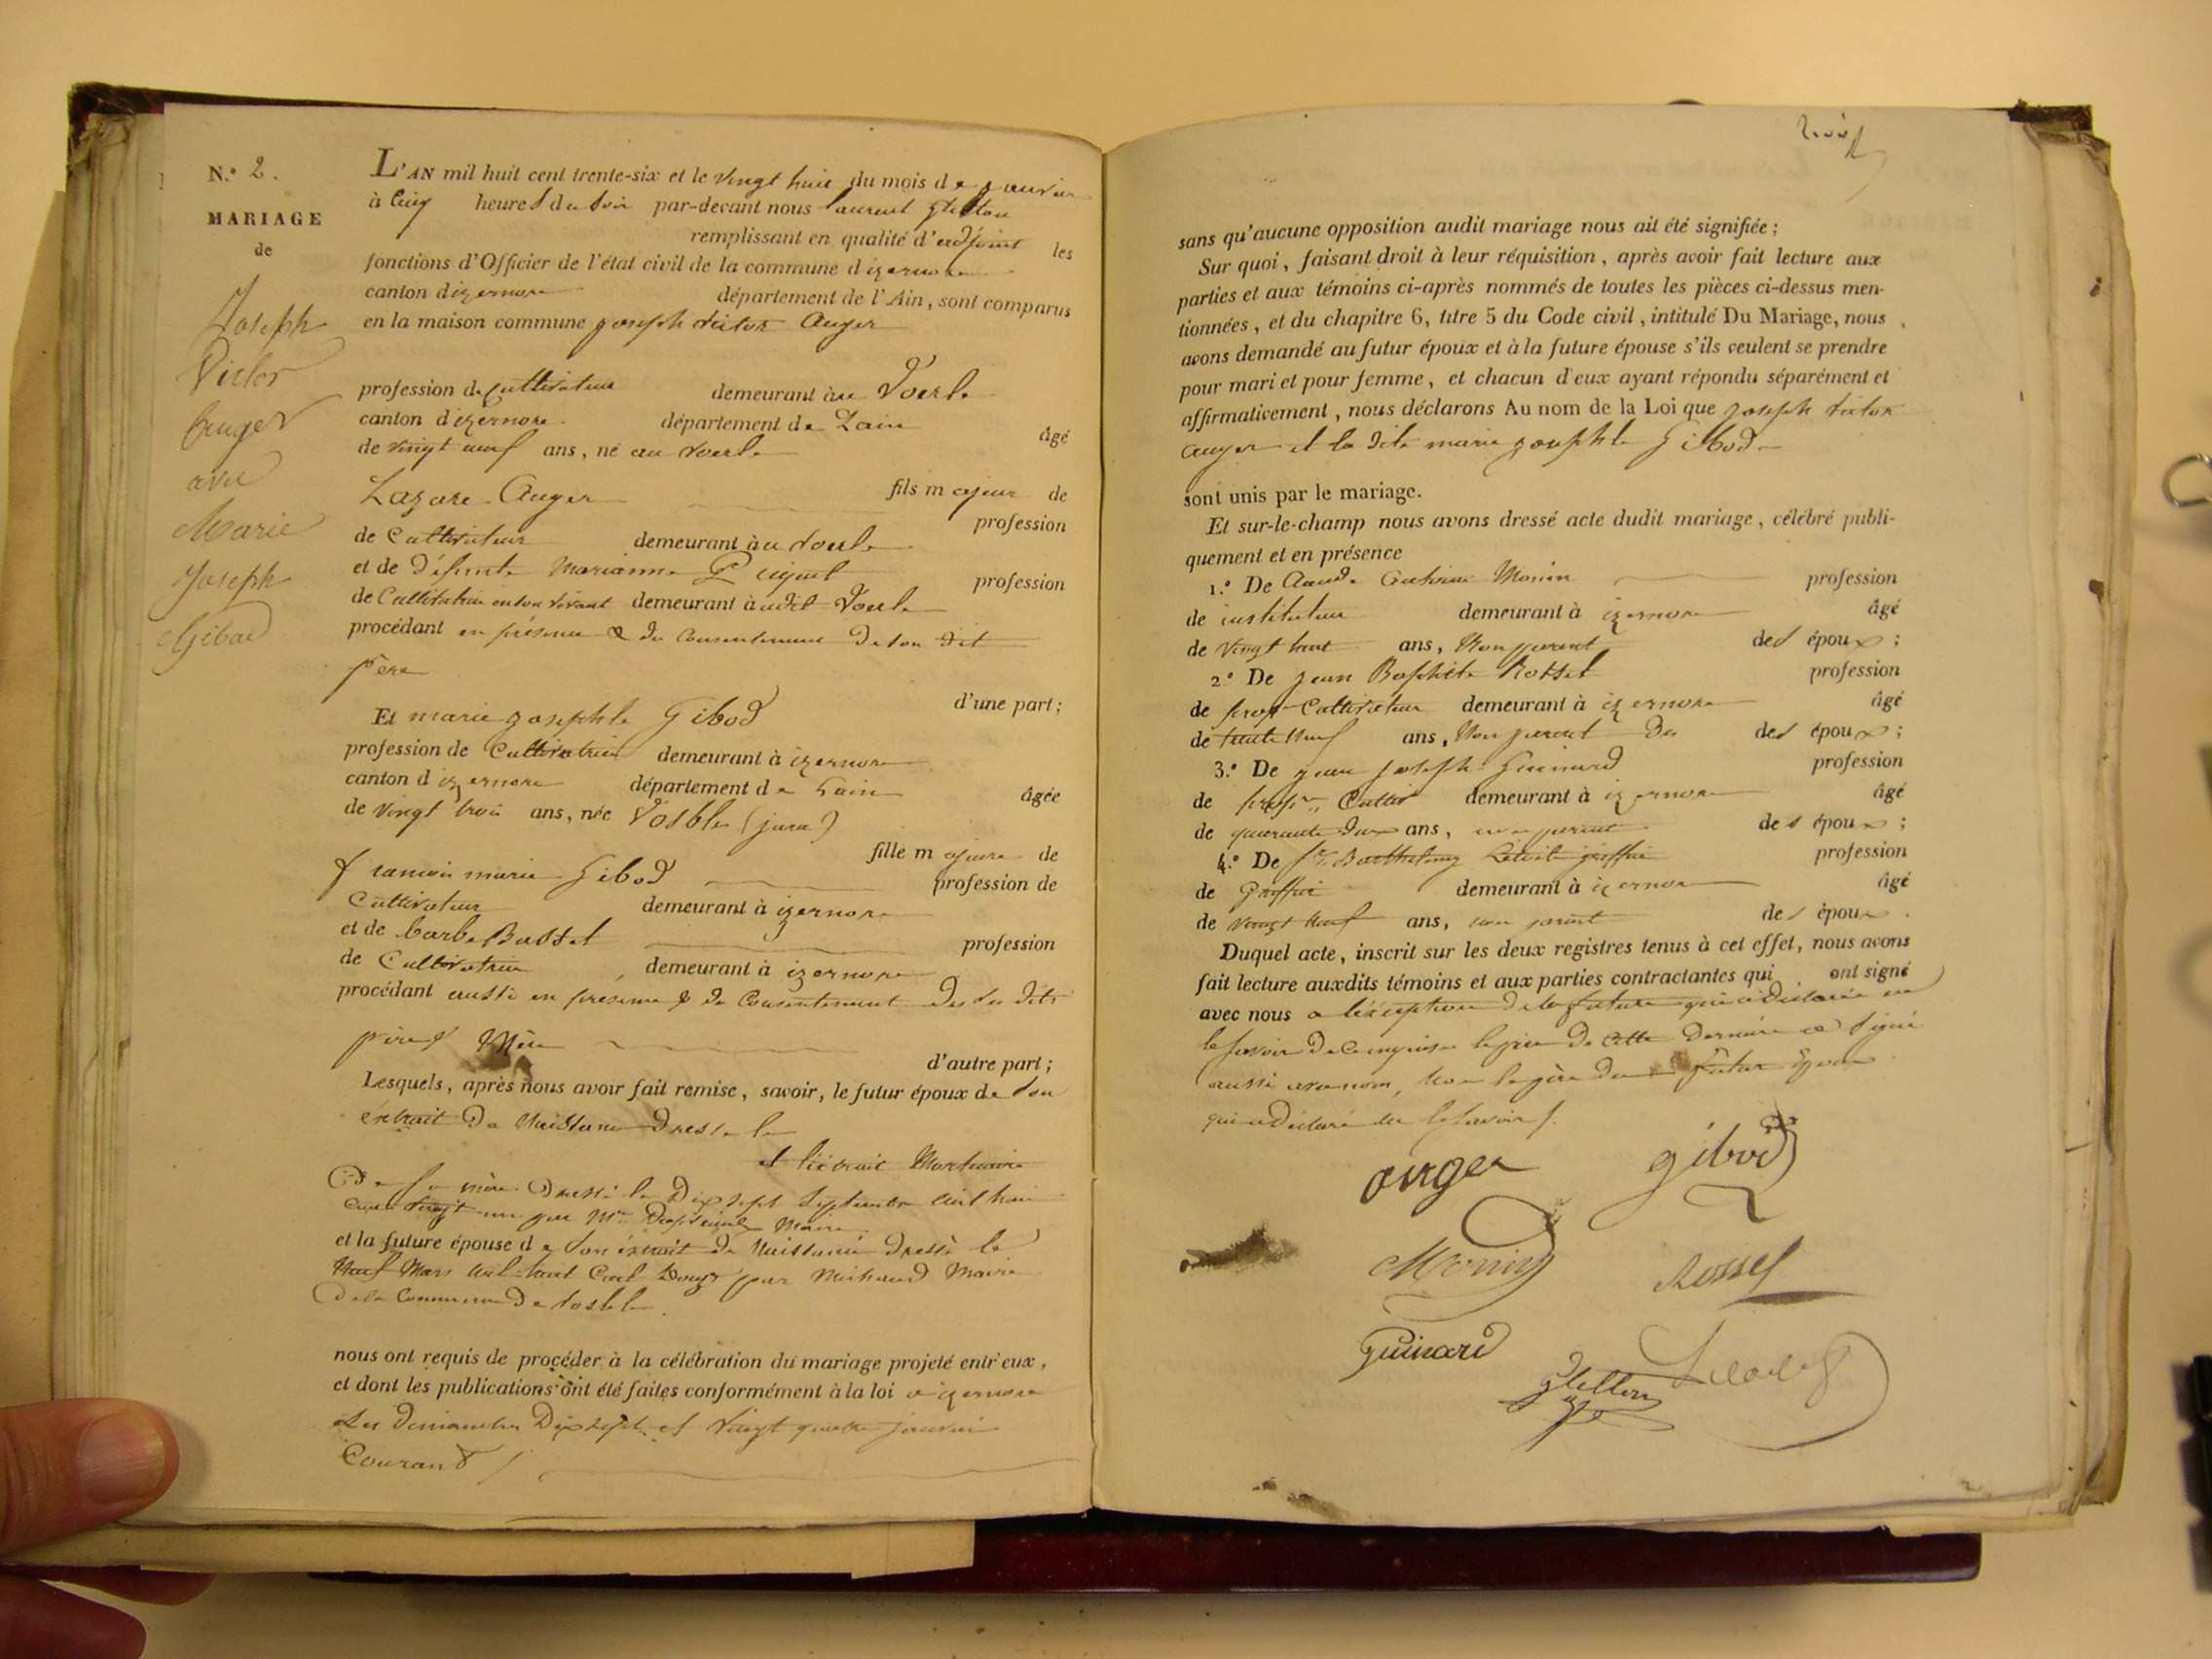 N.° 2.
MARIAGE
de
Joseph
Victor
Auger
avec
Marie
Joseph
Gibod
L'AN mil huit cent trente-six et le vingt huit du mois de janvier
à cinq heures du soir par-devant nous Laurent
remplissant en qualité d'adjoint les
fonctions d'Officier de l'état civil de la commune d izernore
canton d izernore département de l'Ain, sont comparus
en la maison commune joseph victor Auger
profession de cultivateur demeurant au Voerle
canton d izernore département de Lain
âgé
de vingt neuf ans, né au voerle
Lazare Auger fils majeur de
profession
de Cultivateur demeurant à au voerle
et de Défunte Marianne
profession
de Cultivatrice en son vivant demeurant à audit Voerle
procédant en présence & du Consentement de son dit
père
d'une part;
Et marie josephte Gibod
profession de Cultivatrice demeurant à izernore
canton d izernore département de Lain
âgée
de vingt trois ans, née Vosbles (jura)
fille majeure de
francois marie Gibod
profession de
Cultivateur demeurant à izernore
et de barbe Bossel
profession
de Cultivatrice, demeurant à izernore
procédant aussi en présence & du Consentement des ses dits
père & Mère
d'autre part;
Lesquels, après nous avoir fait remise, savoir, le futur époux de son
extrait de Naissance dressé le
et l'extrait Mortuaire
De sa mère Dressé le Dix sept Septembre mil huit
cent vingt un par Mr. Maire
et la future épouse de son extrait de Naissance dressé le
Neuf Mars mil huit Cent Douze par Michaud Maire
de la Commune de Vosbles
nous ont requis de procéder à la célébration du mariage projeté entr'eux,
et dont les publications ont été faites conformément à la loi à izernore
Les dimanches Dix sept et Vingt quatre janvier
Courant
sans qu'aucune opposition audit mariage nous ait été signifiée;
Sur quoi, faisant droit à leur réquisition, après avoir fait lecture aux
parties et aux témoins ci-après nommés de toutes les pièces ci-dessus men-
tionnées, et du chapitre 6, titre 5 du Code civil, intitulé Du Mariage, nous
avons demandé au futur époux et à la future épouse s'ils veulent se prendre
pour mari et pour femme, et chacun d'eux ayant répondu séparément et
affirmativement, nous déclarons Au nom de la Loi que joseph victor
auger et la dite marie josephte Gibod
sont unis par le mariage.
Et sur-le-champ nous avons dressé acte dudit mariage, célébré publi-
quement et en présence
1.° De Claude Monin profession
de instituteur demeurant à izernore âgé
de vingt huit ans, Non parent des époux;
2.° De jean Baptiste Rossel profession
de propre Cultivateur demeurant à izernore âgé
de trente neuf ans, Non parent des époux;
3.° De jean joseph Guinard profession
de propre. Cultivr demeurant à izernore âgé
de quarante deux ans, non parent des époux;
4.° De Barthelemy greffier profession
de Greffier demeurant à izernore âgé
de vingt neuf ans, non parent des époux.
Duquel acte, inscrit sur les deux registres tenus à cet effet, nous avons
fait lecture auxdits témoins et aux parties contractantes qui ont signé
avec nous à l'exception de la future qui a déclaré ne
le savoir de ce enquise le père de cette dernière a signé
aussi avec nous, Non le père du futur époux
qui a déclaré ne le savoir
auger gibod
Monin Rossel
Guinard